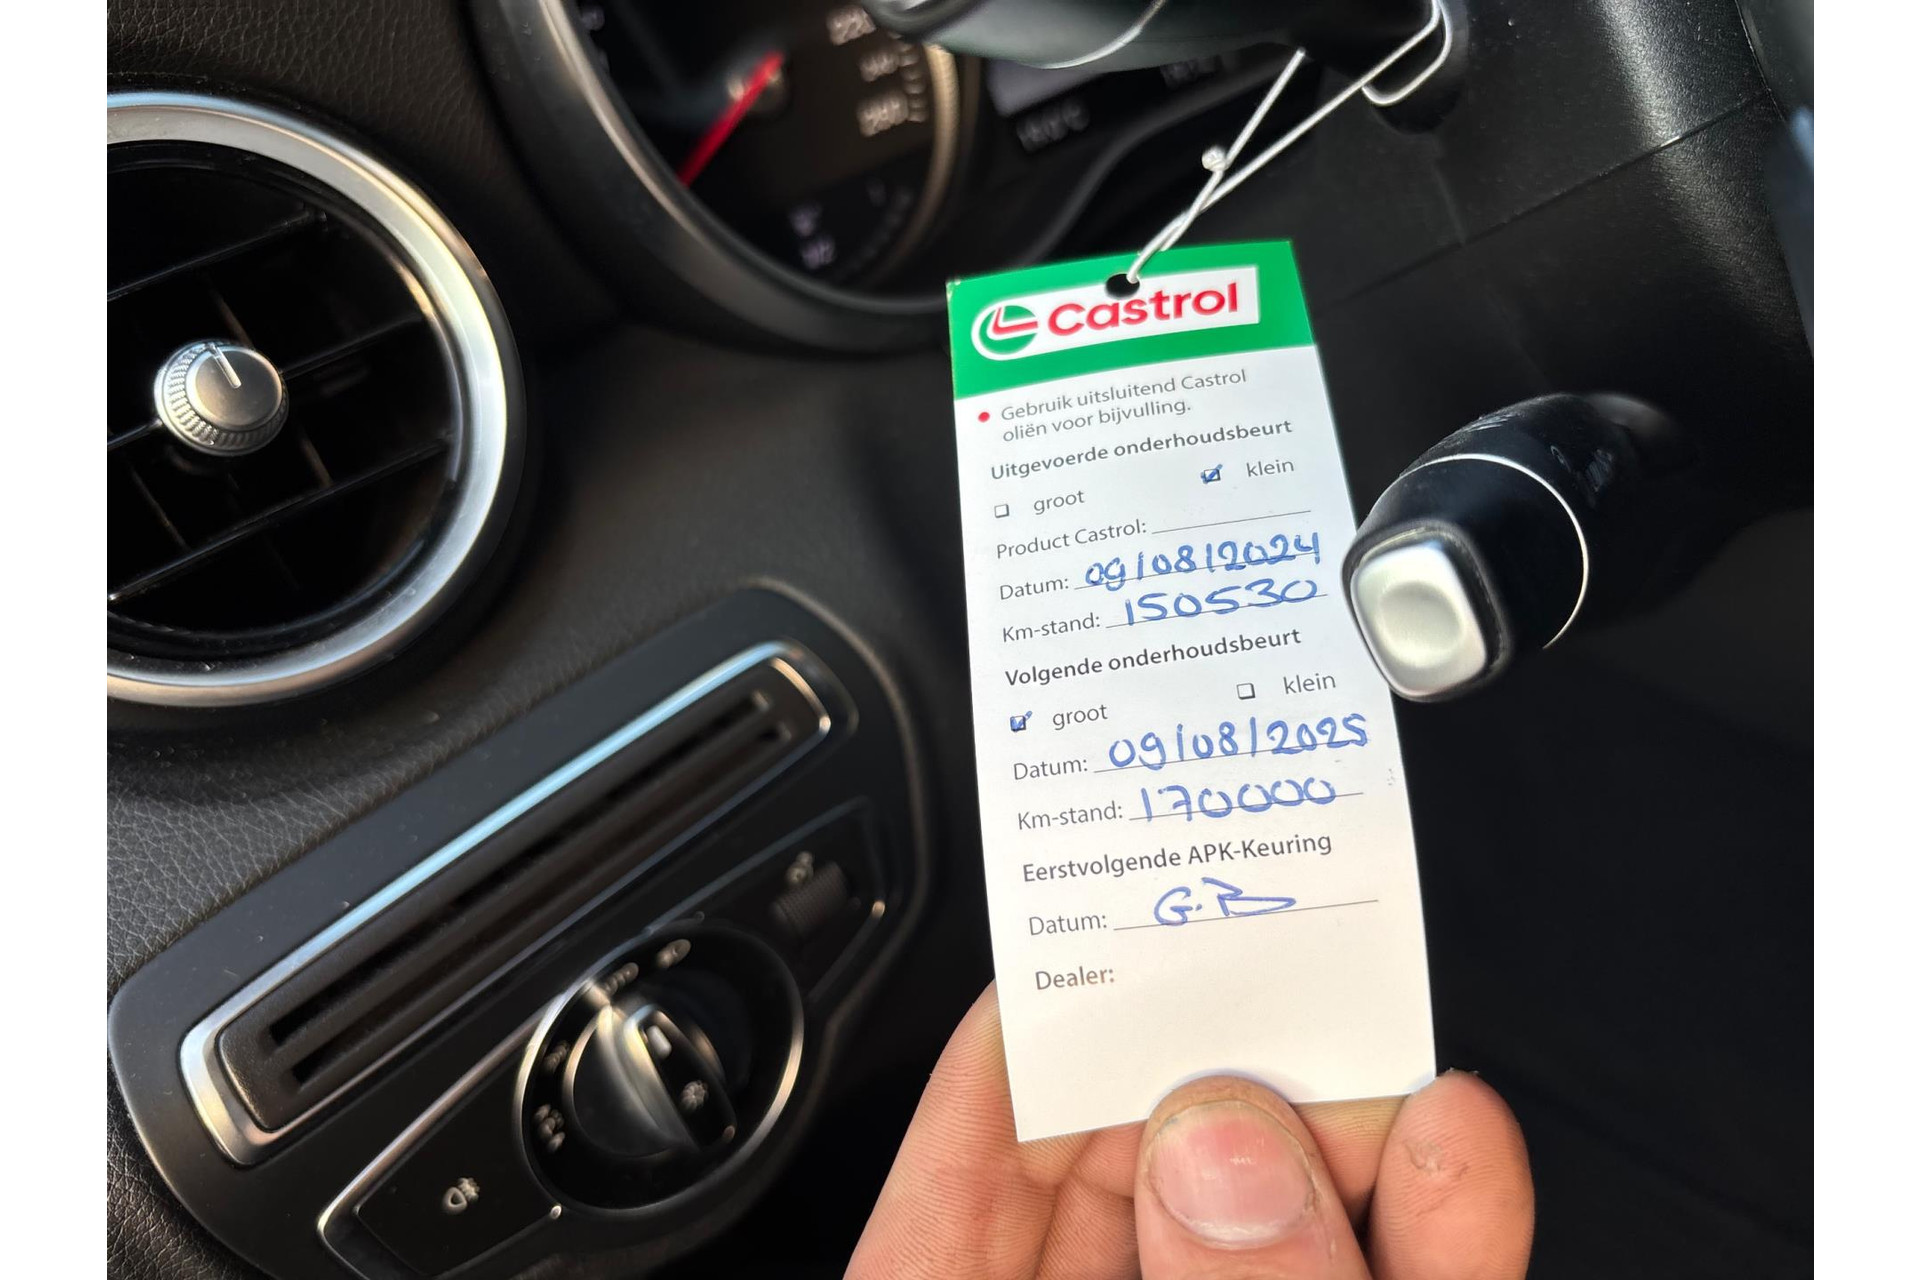 Castrol
• Gebruik uitsluitend Castrol
oliën voor bijvulling.
Uitgevoerde onderhoudsbeurt
☐ groot ☑ klein
Product Castrol:
Datum: 09/08/2024
Km-stand: 150530
Volgende onderhoudsbeurt
☑ groot ☐ klein
Datum: 09/08/2025
Km-stand: 170000
Eerstvolgende APK-Keuring
Datum: G.B
Dealer: